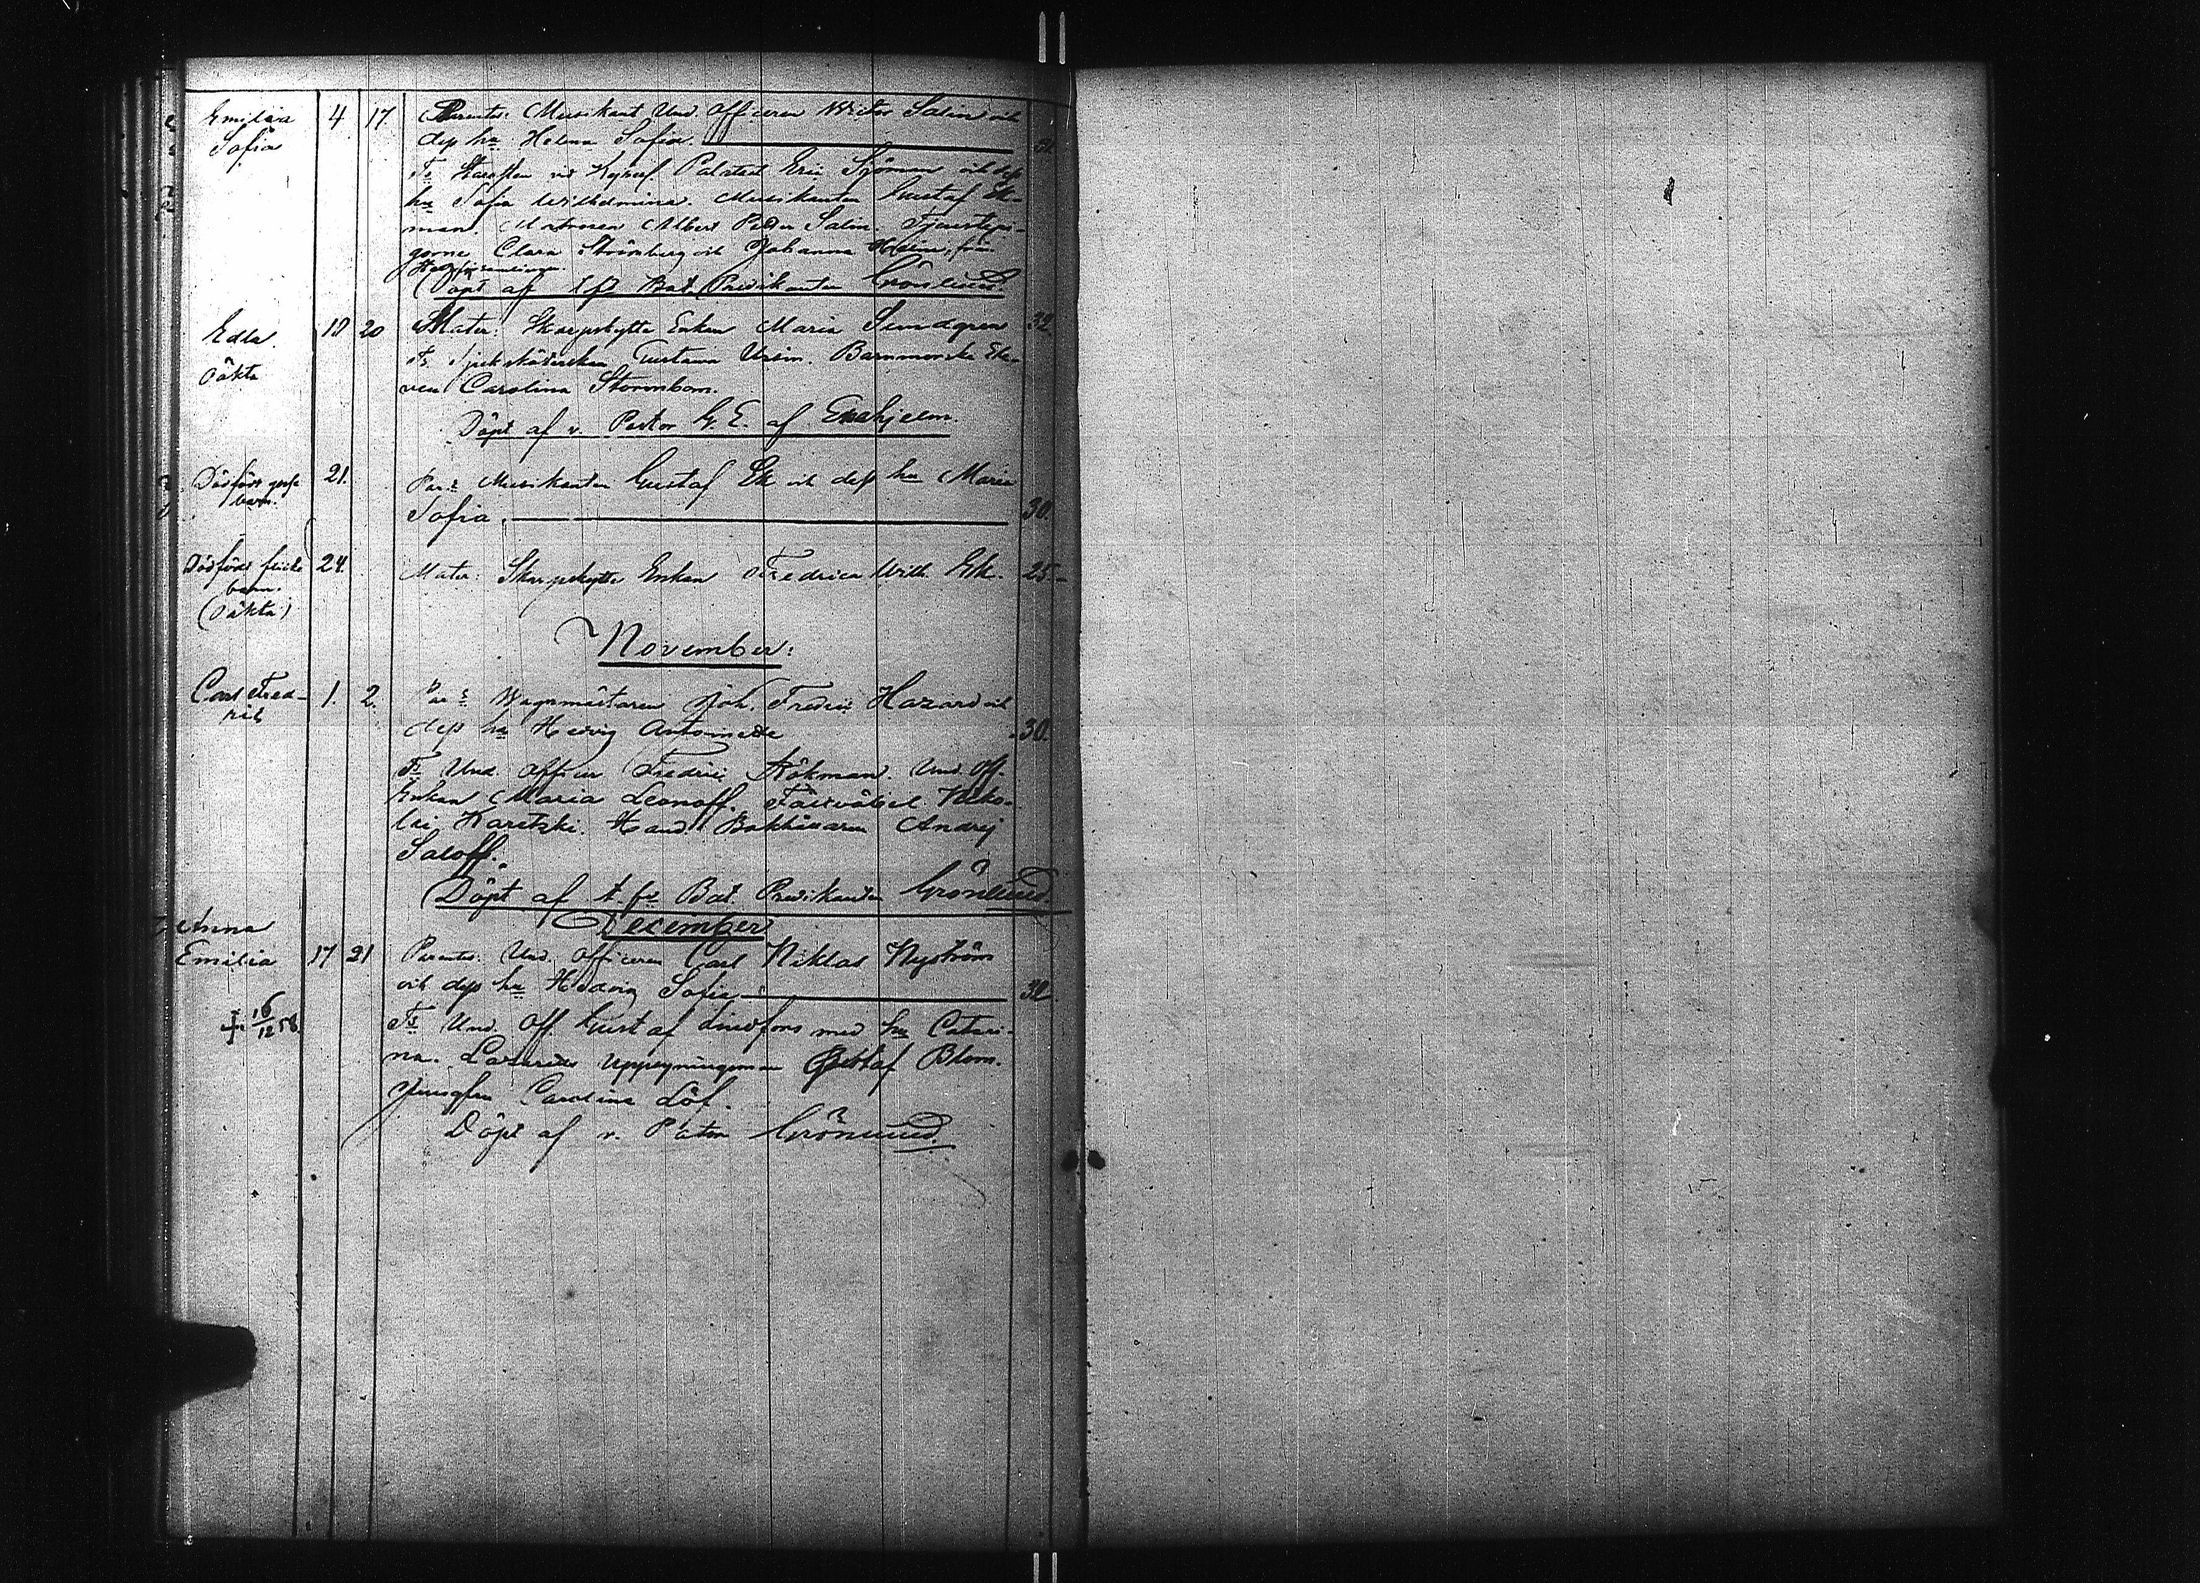 Emilia 4 17 Parentes: Musikant Und. Officeren Victor Salin och
Sofia dess hu Helena Sofia.
Ts vid Kejserl. Palatset Eric Sjöman och dess
hu Sofia Wilhelmina. Musikanten Gustaf Ek-
man. Matrosen Albert Peter Salin. Tjenstepi-
gorne Clara Strömberg och Johanna från
Döpt af Bat. Predikanten Grönlund
Edla 19 20 Mater: Skarpskytte Enkan Maria Sundgren 32.
Oäkta Ts Sjuksköterskan Gustava Barnmorske Ele-
ven Carolina Stormbom.
Döpt af v. Pastor G. E. af Enehjelm.
Dödfödt gosse 21. Par:s Musikanten Gustaf Ek och dess hu Maria
barn. Sofia. 30.
Dödfödt flicke 24. Mater: Skarpskytte Enkan Fredrica Wilh. Ek. 25
barn.
(Oäkta)
November:
Carl Fred- 1. 2. Par:s Wagnmästaren Joh. Fredric Hazard och
rik dess hu Hedvig Antoinette 30.
Ts Und. Officer Fredric Stökman. Und. Off.
Enkan Maria Leonoff. Fältväbel Niko-
lai Karetski. Hand. Bokhållaren Andrej
Saloff.
Döpt af t. f. Bat. Predikanten Grönlund.
December
Anna
Emilia 17 21 Parentes: Und. Officeren Carl Niklas Nyström
och dess hu Hedvig Sofia 32.
† 16/12 58. Ts Und. Off Gustaf Lindfors med hu Catari-
na. Lazaretts Uppsyningsman Gustaf Blom.
Jungfru Carolina Löf.
Döpt af v. Pastor Grönlund.